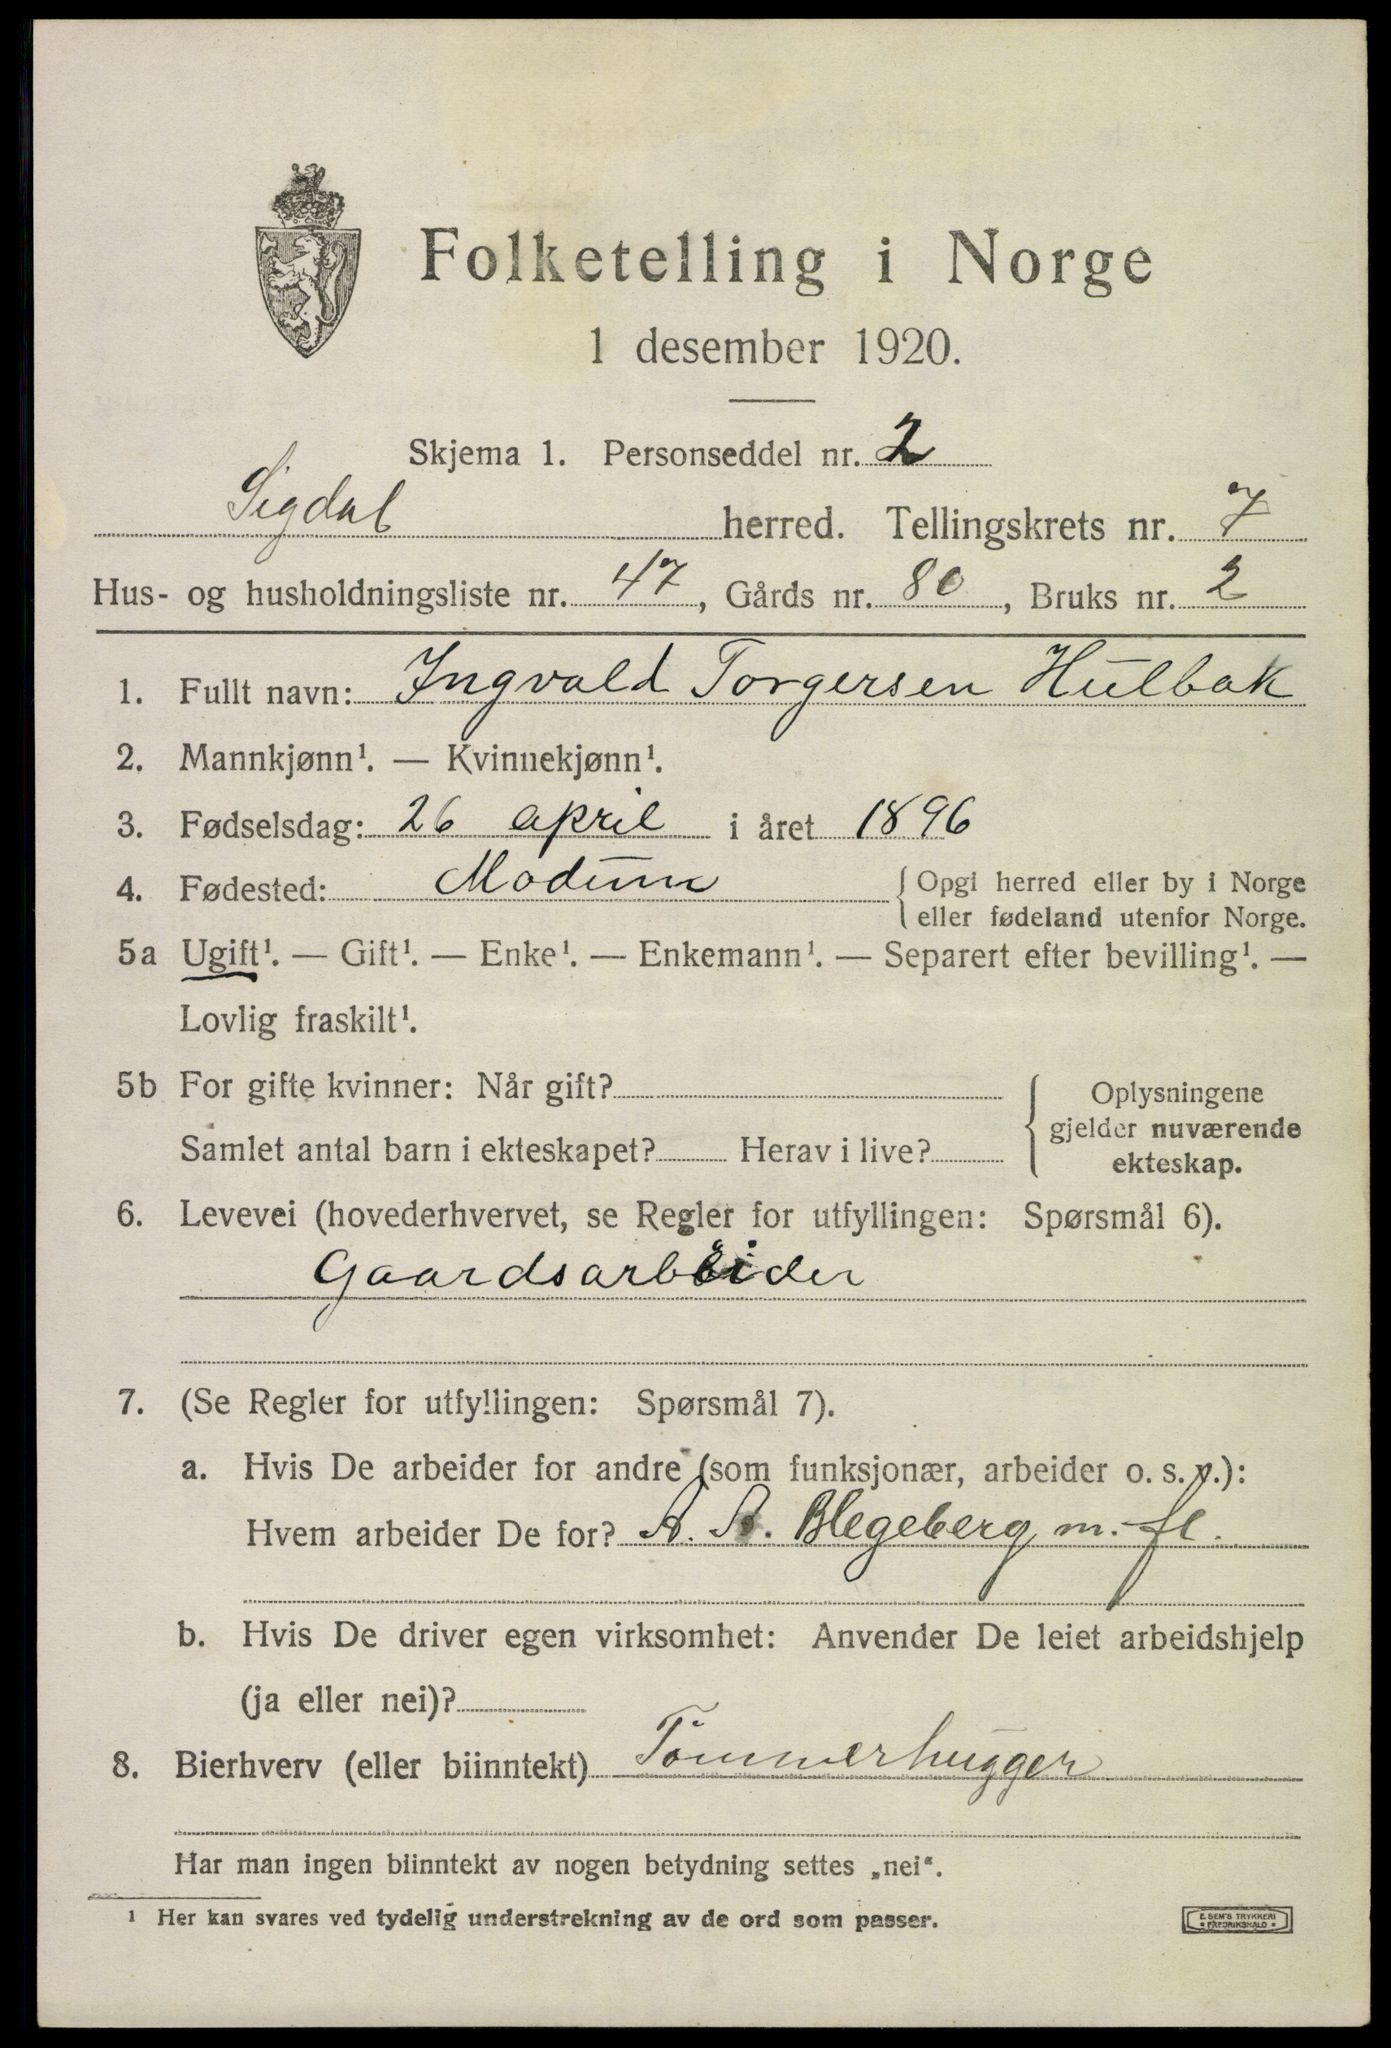 Folketelling i Norge
1 desember 1920.
Skjema 1. Personseddel nr. 2
Sigdal herred. Tellingskrets nr. 7
Hus- og husholdningsliste nr. 47, Gårds nr. 80, Bruks nr. 2
1. Fullt navn: Ingvald Torgersen Hulbak
2. Mannkjønn¹. — Kvinnekjønn¹.
3. Fødselsdag: 26 april i året 1896
4. Fødested: Modum { Opgi herred eller by i Norge
eller fødeland utenfor Norge.
5a Ugift¹. — Gift¹. — Enke¹. — Enkemann¹. — Separert efter bevilling¹. —
Lovlig fraskilt¹.
5b For gifte kvinner: Når gift?
Samlet antal barn i ekteskapet? Herav i live?
Oplysningene
gjelder nuværende
ekteskap.
6. Levevei (hovederhvervet, se Regler for utfyllingen: Spørsmål 6).
Gaardsarbeider
7. (Se Regler for utfyllingen: Spørsmål 7).
a. Hvis De arbeider for andre (som funksjonær, arbeider o. s. v.):
Hvem arbeider De for? A. A. Blegeberg m. fl.
b. Hvis De driver egen virksomhet: Anvender De leiet arbeidshjelp
(ja eller nei)?
8. Bierhverv (eller biinntekt) Tømmerhugger
Har man ingen biinntekt av nogen betydning settes „nei“.
¹ Her kan svares ved tydelig understrekning av de ord som passer.
E. SEM'S TRYKKERI
FREDRIKSHALD